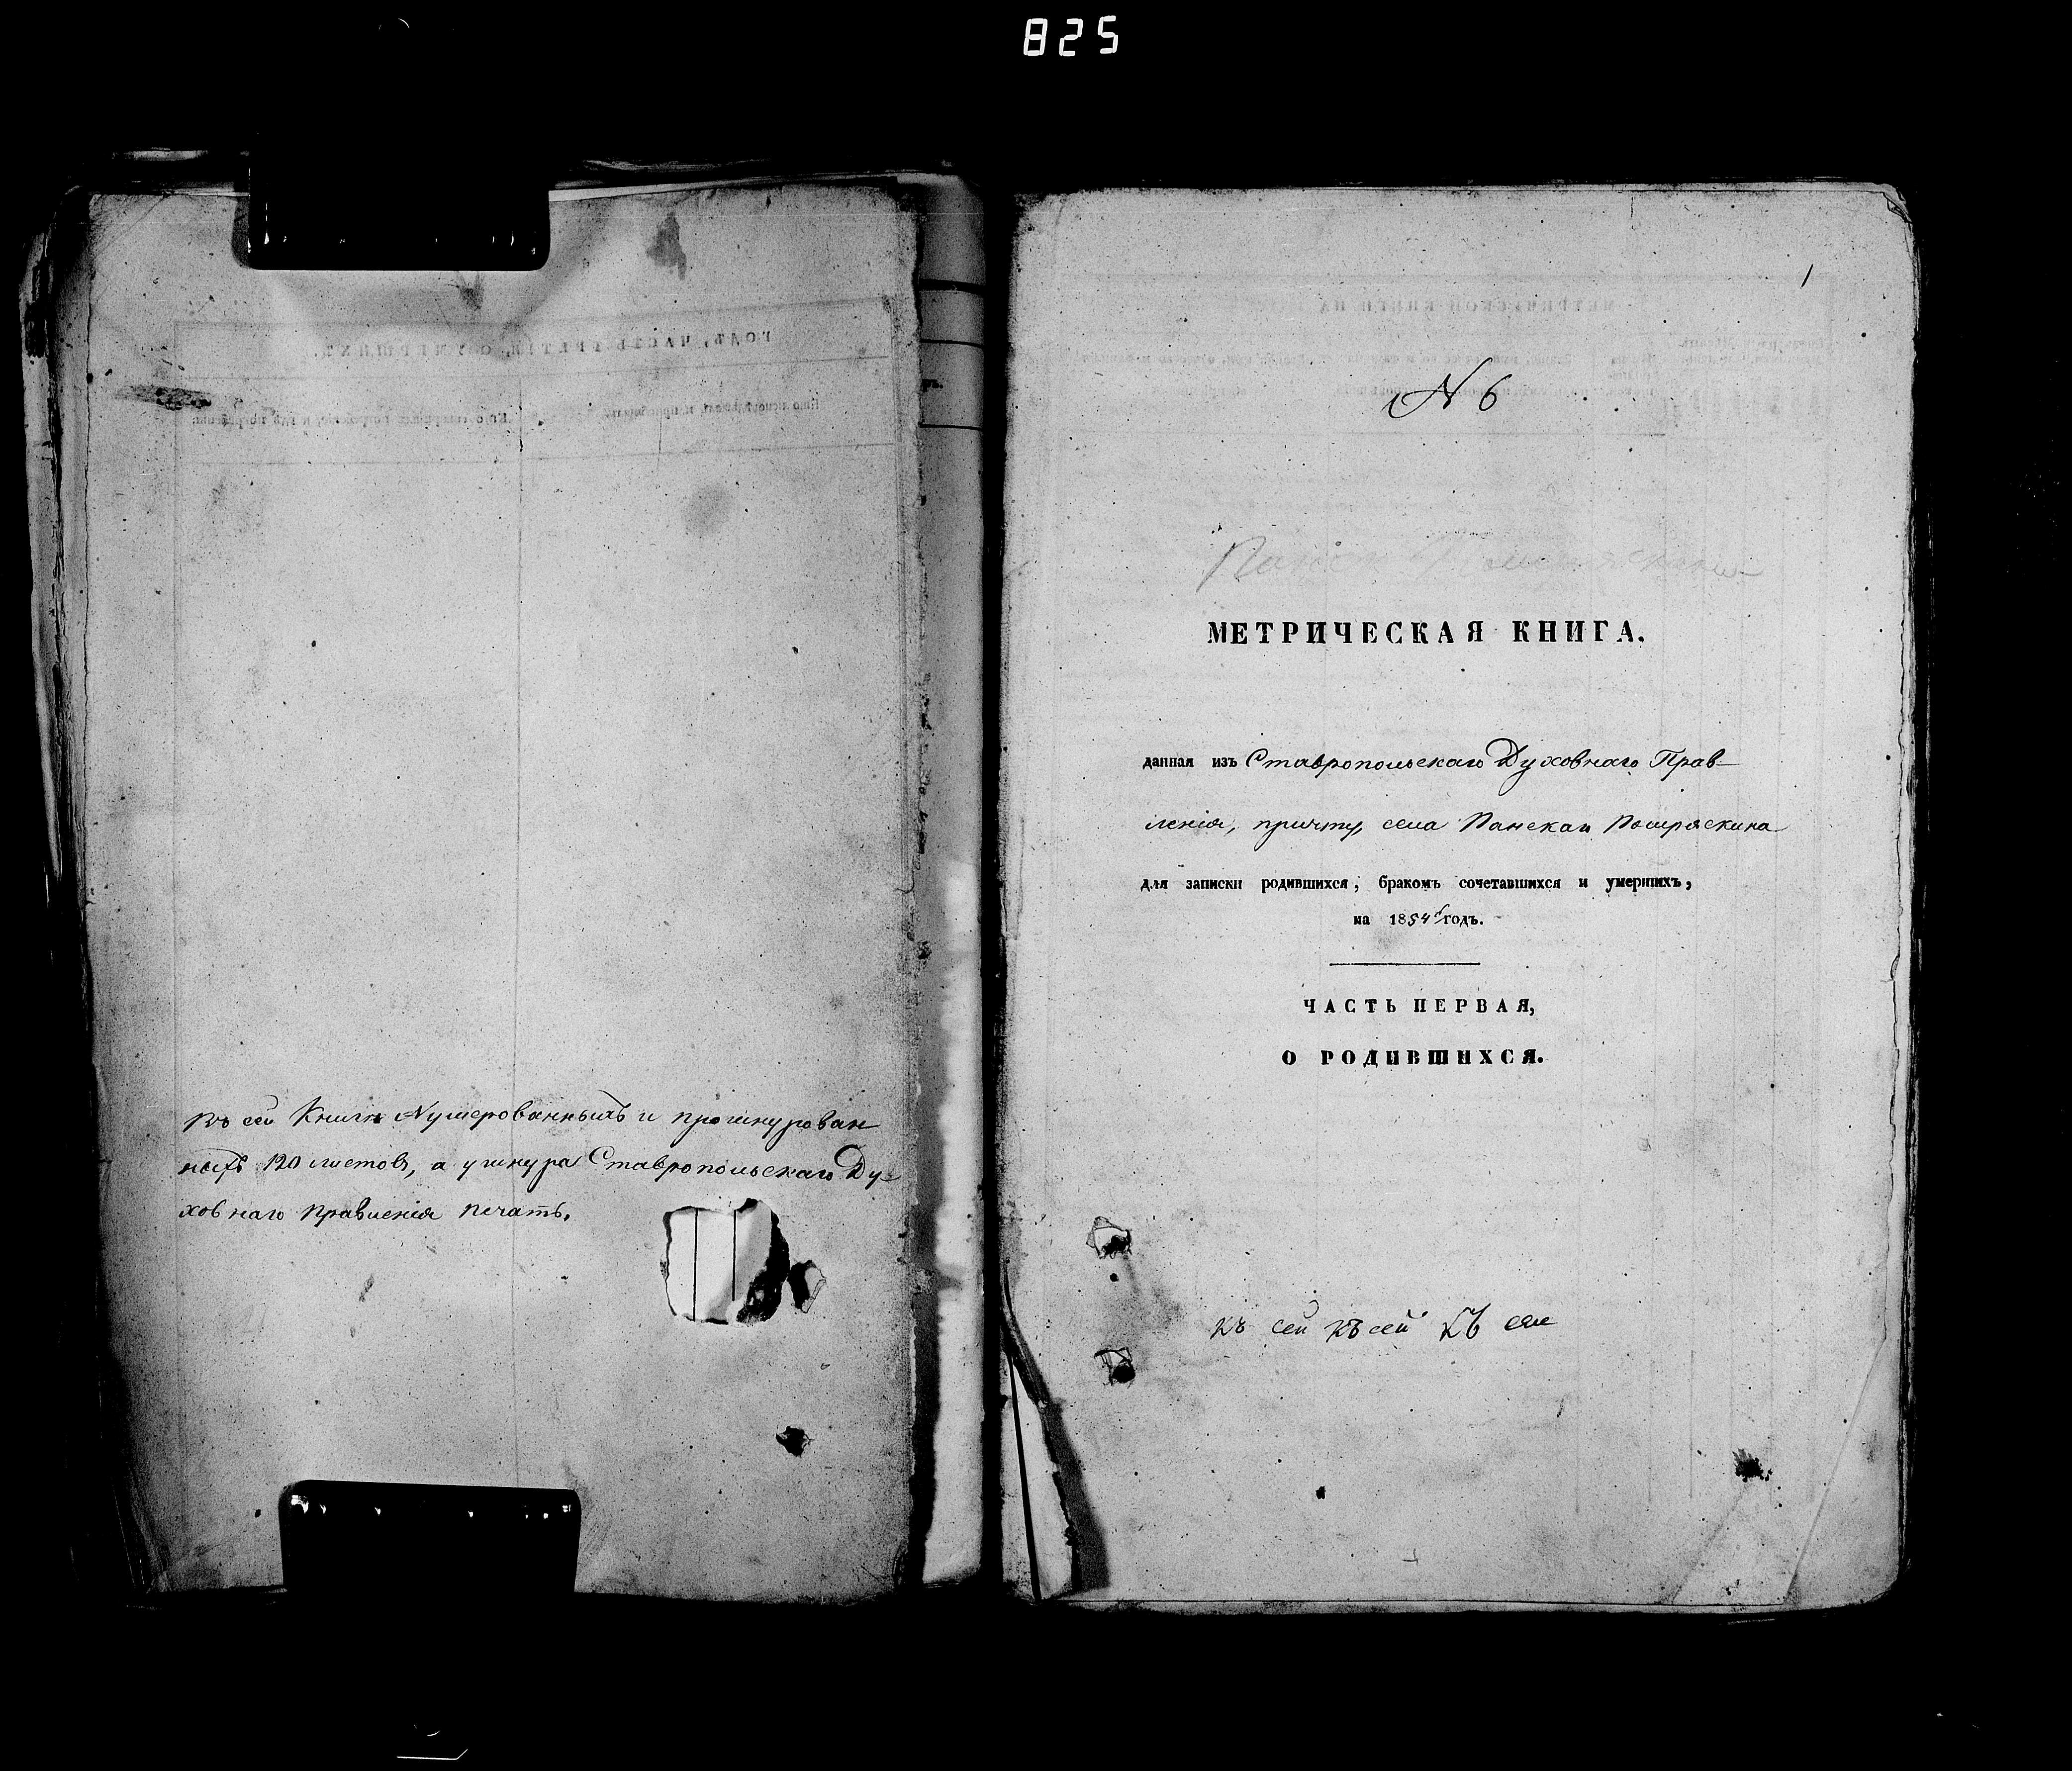 825
Въ сей Книгѣ Нумерованныхъ и прошнурован
ныхъ 120 листовъ, а у шнура Ставропольскаго Ду-
ховнаго Правленія печать.
1
N 6
МЕТРИЧЕСКАЯ КНИГА.
данная изъ Ставропольскаго Духовнаго Прав-
ленія, причту, села Панскаго
для записки родившихся, бракомъ сочетавшихся и умершихъ,
на 1854й годъ.
ЧАСТЬ ПЕРВАЯ,
О РОДИВШИХСЯ.
къ сей къ сей къ сей